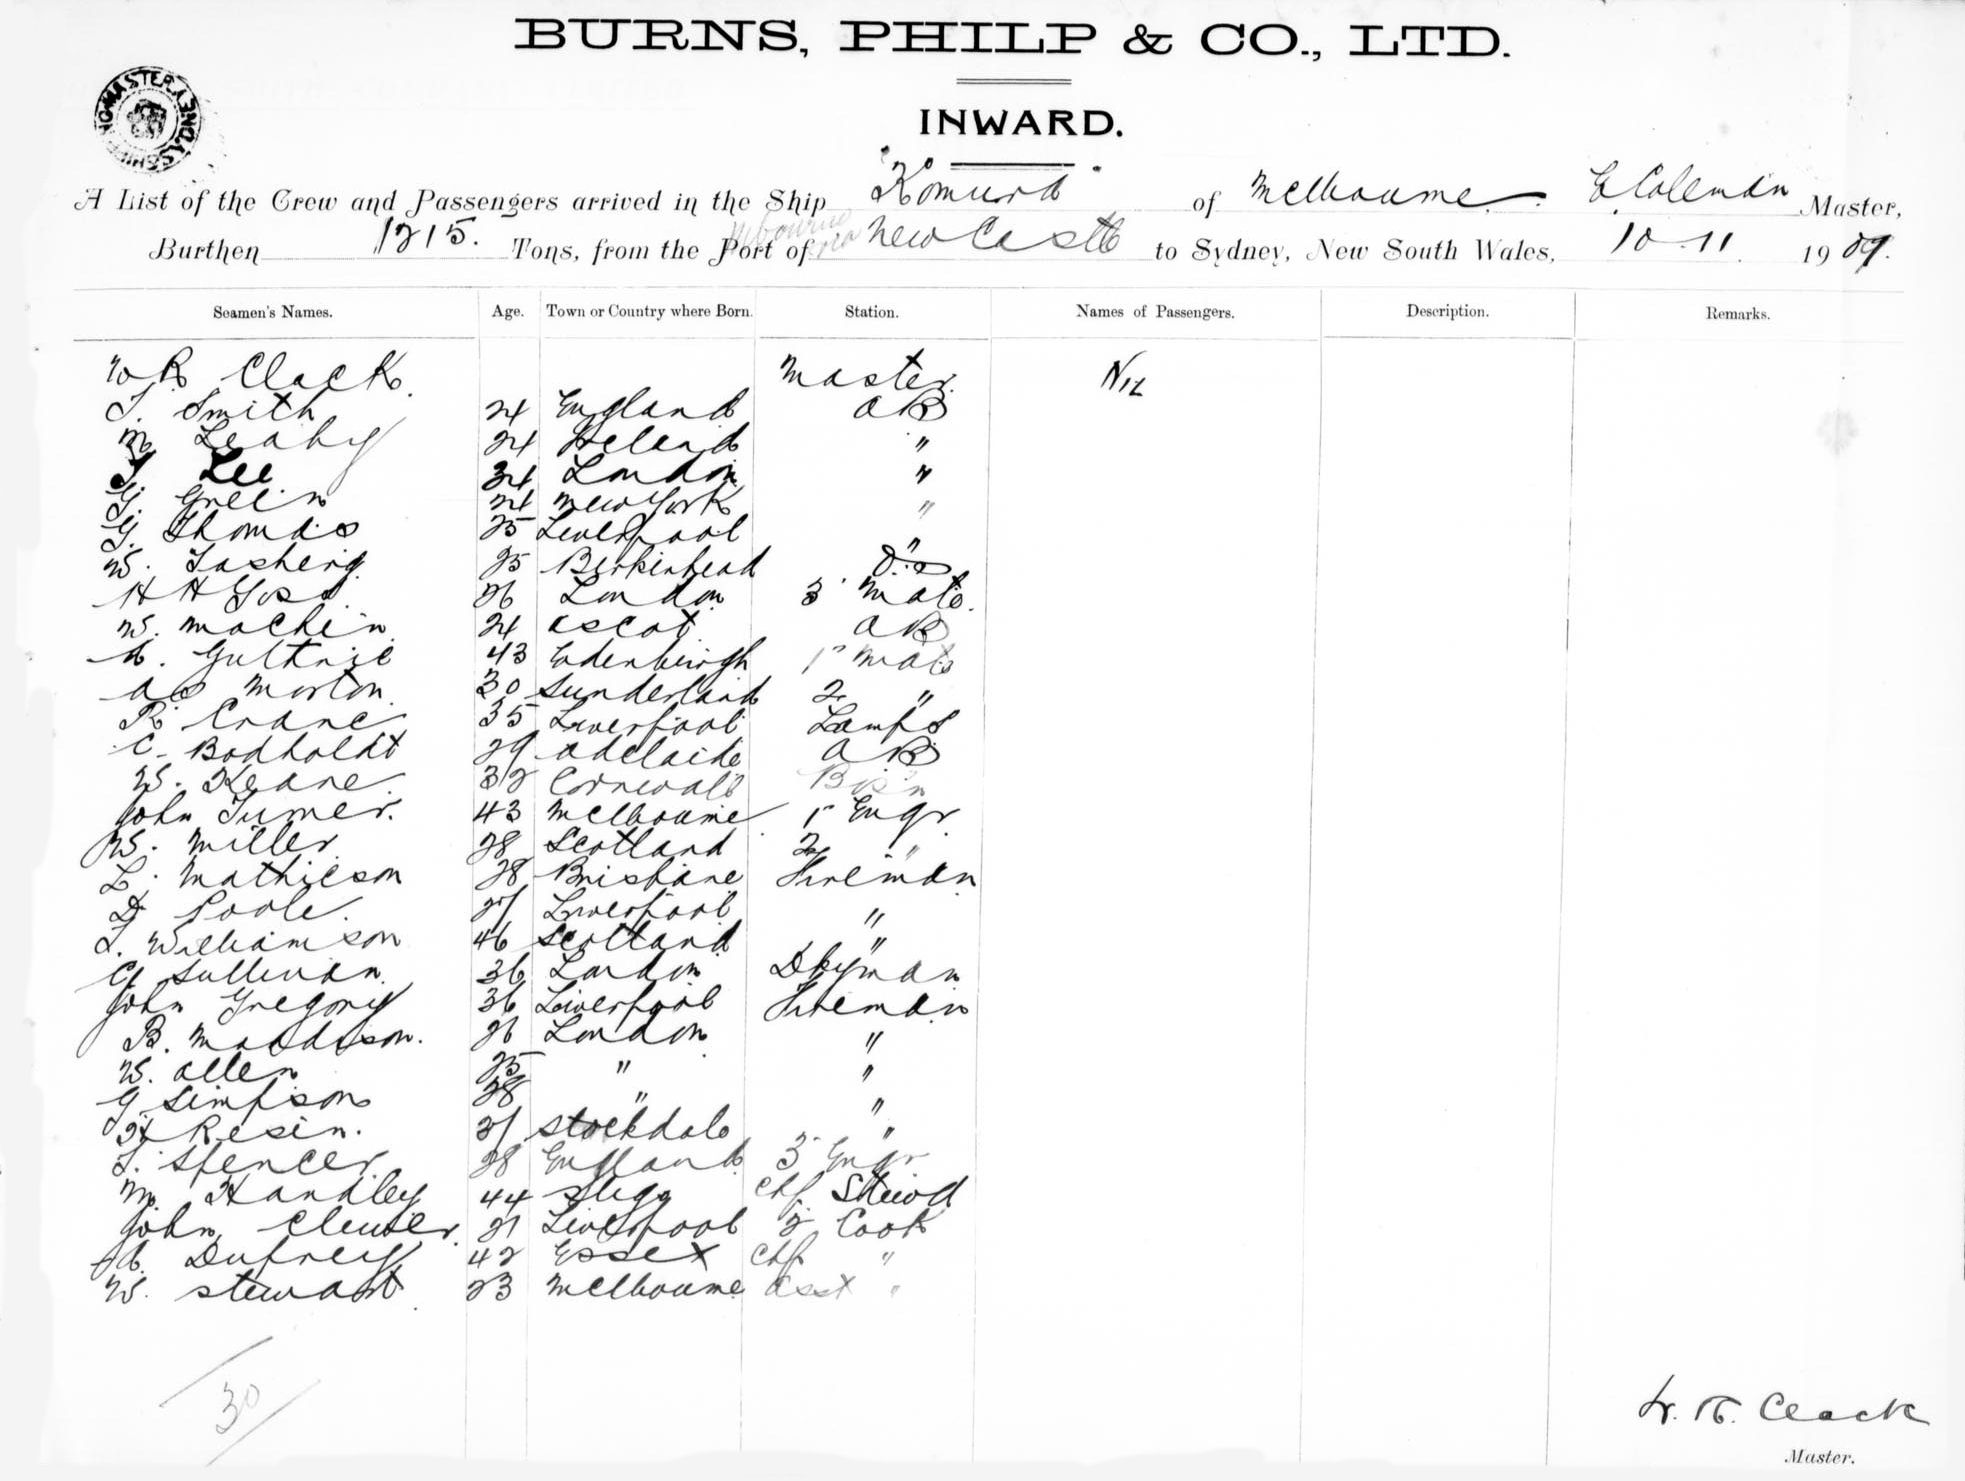 BURNS, PHILP & CO., LTD.
SHIPPING MASTER SYDNEY
INWARD.
A List of the Crew and Passengers arrived in the Ship "Komura" of Melbourne E Coleman Master,
Burthen 1215. Tons, from the Port of Melbourne via NewCastle to Sydney, New South Wales, 10-11 1909.
Seamen's Names. Age. Town or Country where Born. Station. Names of Passengers. Description. Remarks.
W R Clack. Master. Nil
T. Smith 24 England AB
M Leahy 24 Ireland "
T Lee 34 London "
G. Green 24 New York "
G. Thomas 25 Liverpool "
W. 25 Birkinhead Do
H H 26 London 3 Mate.
W. Machin 24 Ascot AB
A. Guthrie 43 Edenburgh 1st Mate
A S Morton 30 Sunderland 2 "
R Crane 35 Liverpool Lamps
C. Bodholdt 29 Adelaide AB
W. Keane 32 Cornwall Bosn
John Turner. 43 Melbourne 1st Engr
W. Miller 28 Scotland 2 "
L. Mathieson 28 Brisbane Fireman
D Poole. 27 Liverpool "
T. Williamson 46 Scotland "
C Sullivan 36 London Dkyman
John Gregory 36 Liverpool Fireman
B. Maddison. 26 London "
W. Allen 25 " "
G Simpson 28 " "
H Resin. 37 Stockdale "
T. Spencer 28 England 3 Engr
M Handley 44 Sligo Chf Stewd
John 21 Liverpool 2 Cook
A. Dufrey 42 Essex Chf "
W. Stewart 23 Melbourne Asst "
30
W. R. Clack
Master.